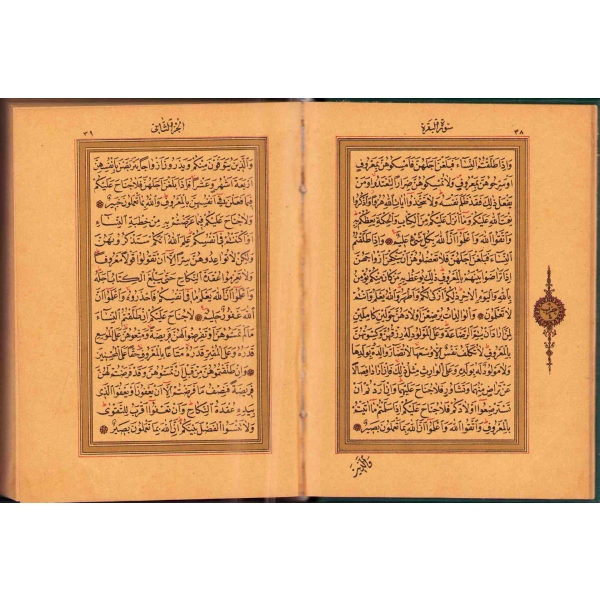 ٣٨
سورة البقرة
واذا طلقتم النساء فبلغن اجلهن فامسكوهن بمعروف
او سرحوهن بمعروف ولا تمسكوهن ضرارا لتعتدوا ومن
يفعل ذلك فقد ظلم نفسه ولا تتخذوا ايات الله هزوا واذكروا
نعمت الله عليكم وما انزل عليكم من الكتاب والحكمة يعظكم به
واتقوا الله واعلموا ان الله بكل شىء عليم واذا طلقتم
النساء فبلغن اجلهن فلا تعضلوهن ان ينكحن ازواجهن
اذا تراضوا بينهم بالمعروف ذلك يوعظ به من كان منكم يؤمن
بالله واليوم الاخر ذلكم ازكى لكم واطهر والله يعلم وانتم
لا تعلمون والوالدات يرضعن اولادهن حولين كاملين
لمن اراد ان يتم الرضاعة وعلى المولود له رزقهن وكسوتهن
بالمعروف لا تكلف نفس الا وسعها لا تضار والدة بولدها
ولا مولود له بولده وعلى الوارث مثل ذلك فان ارادا فصالا
عن تراض منهما وتشاور فلا جناح عليهما وان اردتم ان
تسترضعوا اولادكم فلا جناح عليكم اذا سلمتم ما اتيتم
بالمعروف واتقوا الله واعلموا ان الله بما تعملون بصير
والذين
الجزء الثانى
٣٩
والذين يتوفون منكم ويذرون ازواجا يتربصن بانفسهن
اربعة اشهر وعشرا فاذا بلغن اجلهن فلا جناح عليكم
فيما فعلن فى انفسهن بالمعروف والله بما تعملون خبير
ولا جناح عليكم فيما عرضتم به من خطبة النساء
او اكننتم فى انفسكم علم الله انكم ستذكرونهن
ولكن لا تواعدوهن سرا الا ان تقولوا قولا معروفا
ولا تعزموا عقدة النكاح حتى يبلغ الكتاب اجله
واعلموا ان الله يعلم ما فى انفسكم فاحذروه واعلموا ان
الله غفور حليم لا جناح عليكم ان طلقتم النساء
ما لم تمسوهن او تفرضوا لهن فريضة ومتعوهن على الموسع
قدره وعلى المقتر قدره متاعا بالمعروف حقا على المحسنين
وان طلقتموهن من قبل ان تمسوهن وقد فرضتم لهن
فريضة فنصف ما فرضتم الا ان يعفون او يعفوا الذى
بيده عقدة النكاح وان تعفوا اقرب للتقوى
ولا تنسوا الفضل بينكم ان الله بما تعملون بصير